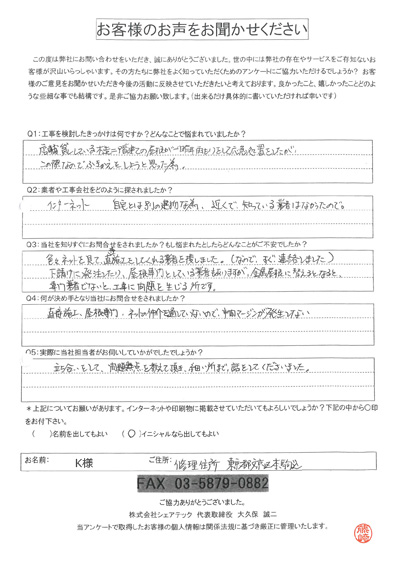 お客様のお声をお聞かせください
この度は弊社にお問い合わせをいただき、誠にありがとうございました。世の中には弊社の存在やサービスをご存知ないお
客様が沢山いらっしゃいます。その方たちに弊社をよく知っていただくためのアンケートにご協力いただけるでしょうか？ お客
様のご意見をお聞かせいただき今後の活動に反映させていただきたいと考えております。良かったこと、嬉しかったことどのよ
うな些細な事でも結構です。是非ご協力お願い致します。（出来るだけ具体的に書いていただければ幸いです）
Q1:工事を検討したきっかけは何ですか？どんなことで悩まれていましたか？
この際なのでふきかえをしようと思った為。
Q2:業者や工事会社をどのように探されましたか？
インターネット 自宅とは別の場所な為、近くで、知っている業者はなかったので。
Q3:当社を知りすぐにお問合せをされましたか？もし悩まれたとしたらどんなことがご不安でしたか？
色々ネットを見て、直施工としてくれる業者を探しました。（なので、すぐ連絡しました）
下請けに発注したり、屋根専門としている業者もありますが、金属屋根に替えるとなると、
専門業者でないと、工事に問題を生じる所です。
Q4:何が決め手となり当社にお問合せをされましたか？
直接施工、屋根専門、ネットの仲介を通していないので、中間マージンが発生しない
Q5:実際に当社担当者がお伺いしていかがでしたでしょうか？
立ち合いをして、問題点を教えて頂き、細い所まで、話をしてくださいました。
＊上記についてお願いがあります。インターネットや印刷物に掲載させていただいてもよろしいでしょうか？下記の中から〇印
をお付下さい。
（ ）名前を出してもよい （〇）イニシャルなら出してもよい
お名前: K様 ご住所: 修理住所 東京都
FAX 03-5879-0882
ご協力ありがとうございました。
株式会社シェアテック 代表取締役 大久保 誠二
当アンケートで取得したお客様の個人情報は関係法規に基づき厳正に管理いたします。